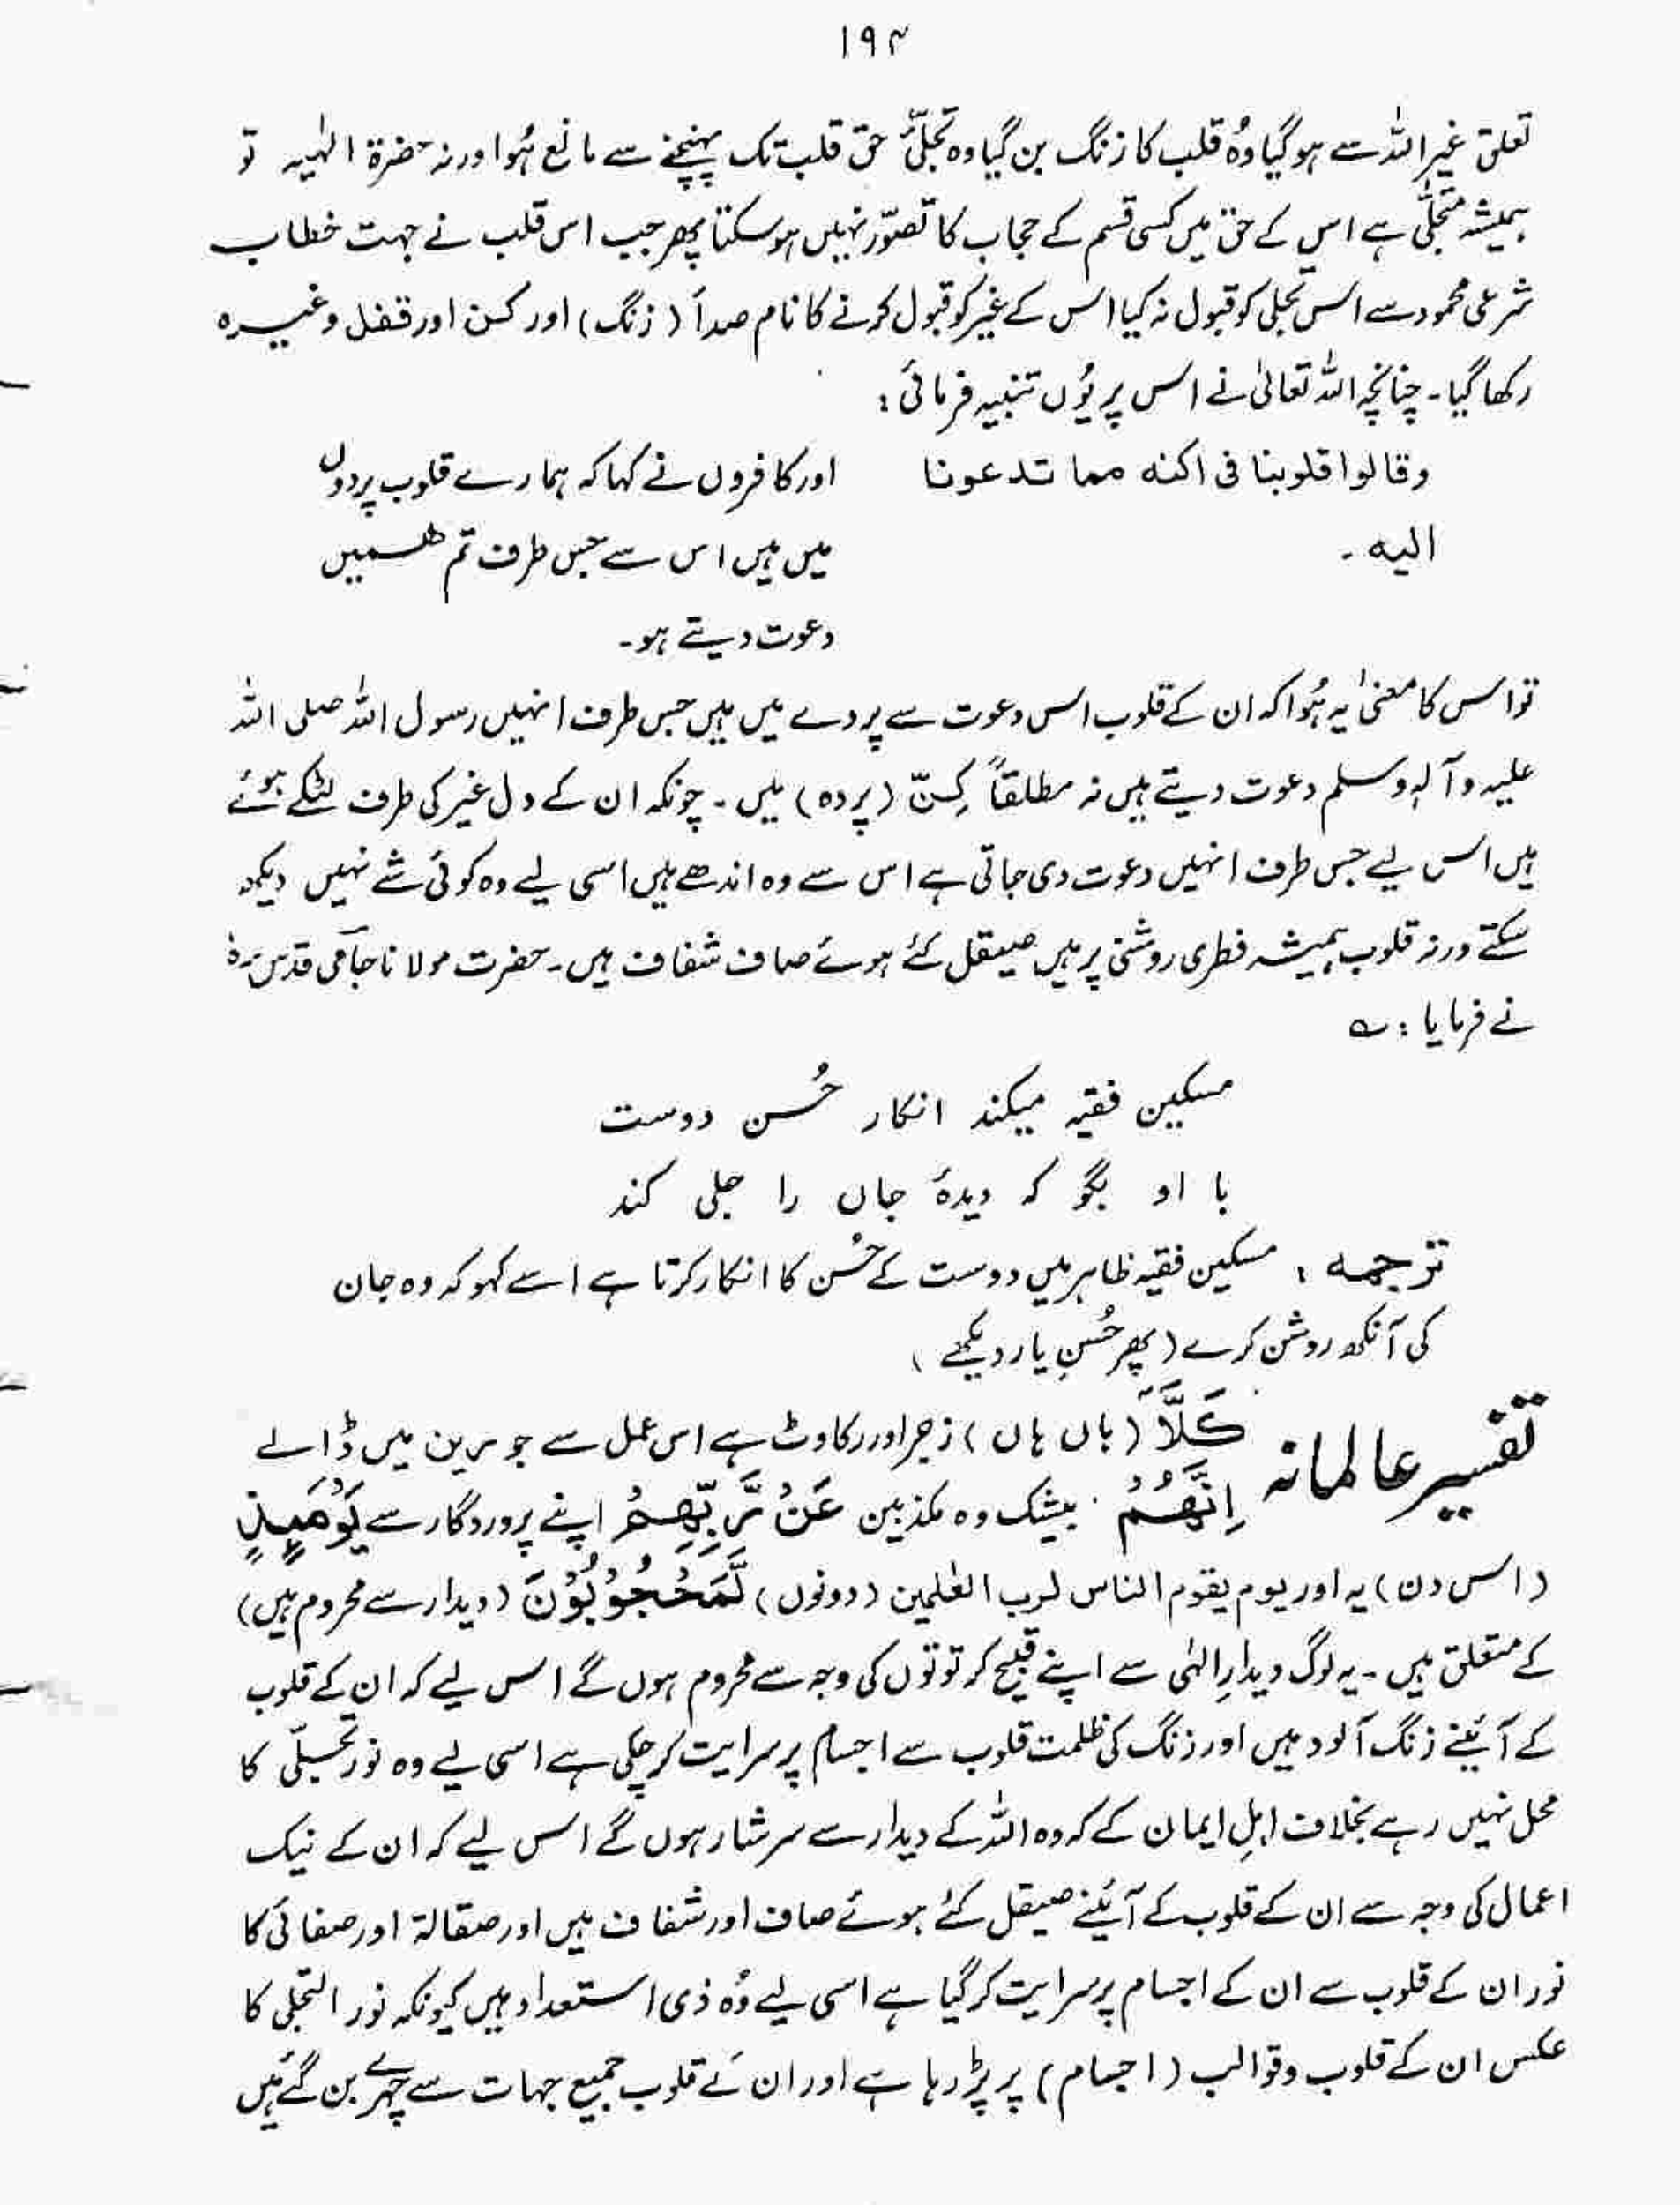 ۱۹۴
تعلق غیر اللہ سے ہو گیا وُہ قلب کا زنگ بن گیا وہ تجلّیٔ حق قلب تک پہنچنے سے مانع ہُوا ورنہ حضرۃ الٰہیہ تو
ہمیشہ متجلّی ہے اس کے حق میں کسی قسم کے حجاب کا تصوّر نہیں ہو سکتا پھر جب اس قلب نے جہت خطاب
شرعی محمود سے اس تجلی کو قبول نہ کیا اس کے غیر کو قبول کرنے کا نام صدأ (زنگ) اور کن اور قفل وغیرہ
رکھا گیا۔ چنانچہ اللہ تعالیٰ نے اس پر یُوں تنبیہ فرمائی:
وقالوا قلوبنا فی اکنه مما تدعونا اور کافروں نے کہا کہ ہمارے قلوب پردوں
الیه۔ میں ہیں اس سے جس طرف تم ہمیں
دعوت دیتے ہو۔
تو اس کا معنیٰ یہ ہُوا کہ ان کے قلوب اس دعوت سے پردے میں ہیں جس طرف انہیں رسول اللہ صلی اللہ
علیہ وآلہٖ وسلم دعوت دیتے ہیں نہ مطلقاً کِنّ (پردہ) میں۔ چونکہ ان کے دل غیر کی طرف لٹکے ہوئے
ہیں اس لیے جس طرف انہیں دعوت دی جاتی ہے اس سے وہ اندھے ہیں اسی لیے وہ کوئی شے نہیں دیکھ
سکتے ورنہ قلوب ہمیشہ فطری روشنی پر ہیں صیقل کئے ہوئے صاف شفاف ہیں۔ حضرت مولانا جامی قدس سرہٗ
نے فرمایا: ؎
مسکین فقیہ میکند انکار حُسن دوست
با او بگو کہ دیدۂ جاں را جلی کند
ترجمہ: مسکین فقیہ ظاہر میں دوست کے حُسن کا انکار کرتا ہے اسے کہو کہ وہ جان
کی آنکھ روشن کرے (پھر حُسنِ یار دیکھے)
تفسیر عالمانہ كَلَّآ (ہاں ہاں) زجر اور رکاوٹ ہے اس عمل سے جو سرین میں ڈالے
اِنَّهُمْ بیشک وہ مکذبین عَنْ رَّبِّهِمْ اپنے پروردگار سے يَوْمَىِٕذٍ
(اس دن) یہ اور یوم یقوم الناس لرب العٰلمین (دونوں) لَّمَحْجُوْبُوْنَ (دیدار سے محروم ہیں)
کے متعلق ہیں۔ یہ لوگ دیدارِ الٰہی سے اپنے قبیح کرتوتوں کی وجہ سے محروم ہوں گے اس لیے کہ ان کے قلوب
کے آئینے زنگ آلود ہیں اور زنگ کی ظلمت قلوب سے اجسام پر سرایت کر چکی ہے اسی لیے وہ نور تجلّی کا
محل نہیں رہے بخلاف اہلِ ایمان کے کہ وہ اللہ کے دیدار سے سرشار ہوں گے اس لیے کہ ان کے نیک
اعمال کی وجہ سے ان کے قلوب کے آئینے صیقل کئے ہوئے صاف اور شفاف ہیں اور صقالۃ اور صفائی کا
نور ان کے قلوب سے ان کے اجسام پر سرایت کر گیا ہے اسی لیے وُہ ذی استعداد ہیں کیونکہ نور التجلی کا
عکس ان کے قلوب وقوالب (اجسام) پر پڑ رہا ہے اور ان کے قلوب جمیع جہات سے چہرے بن گئے ہیں